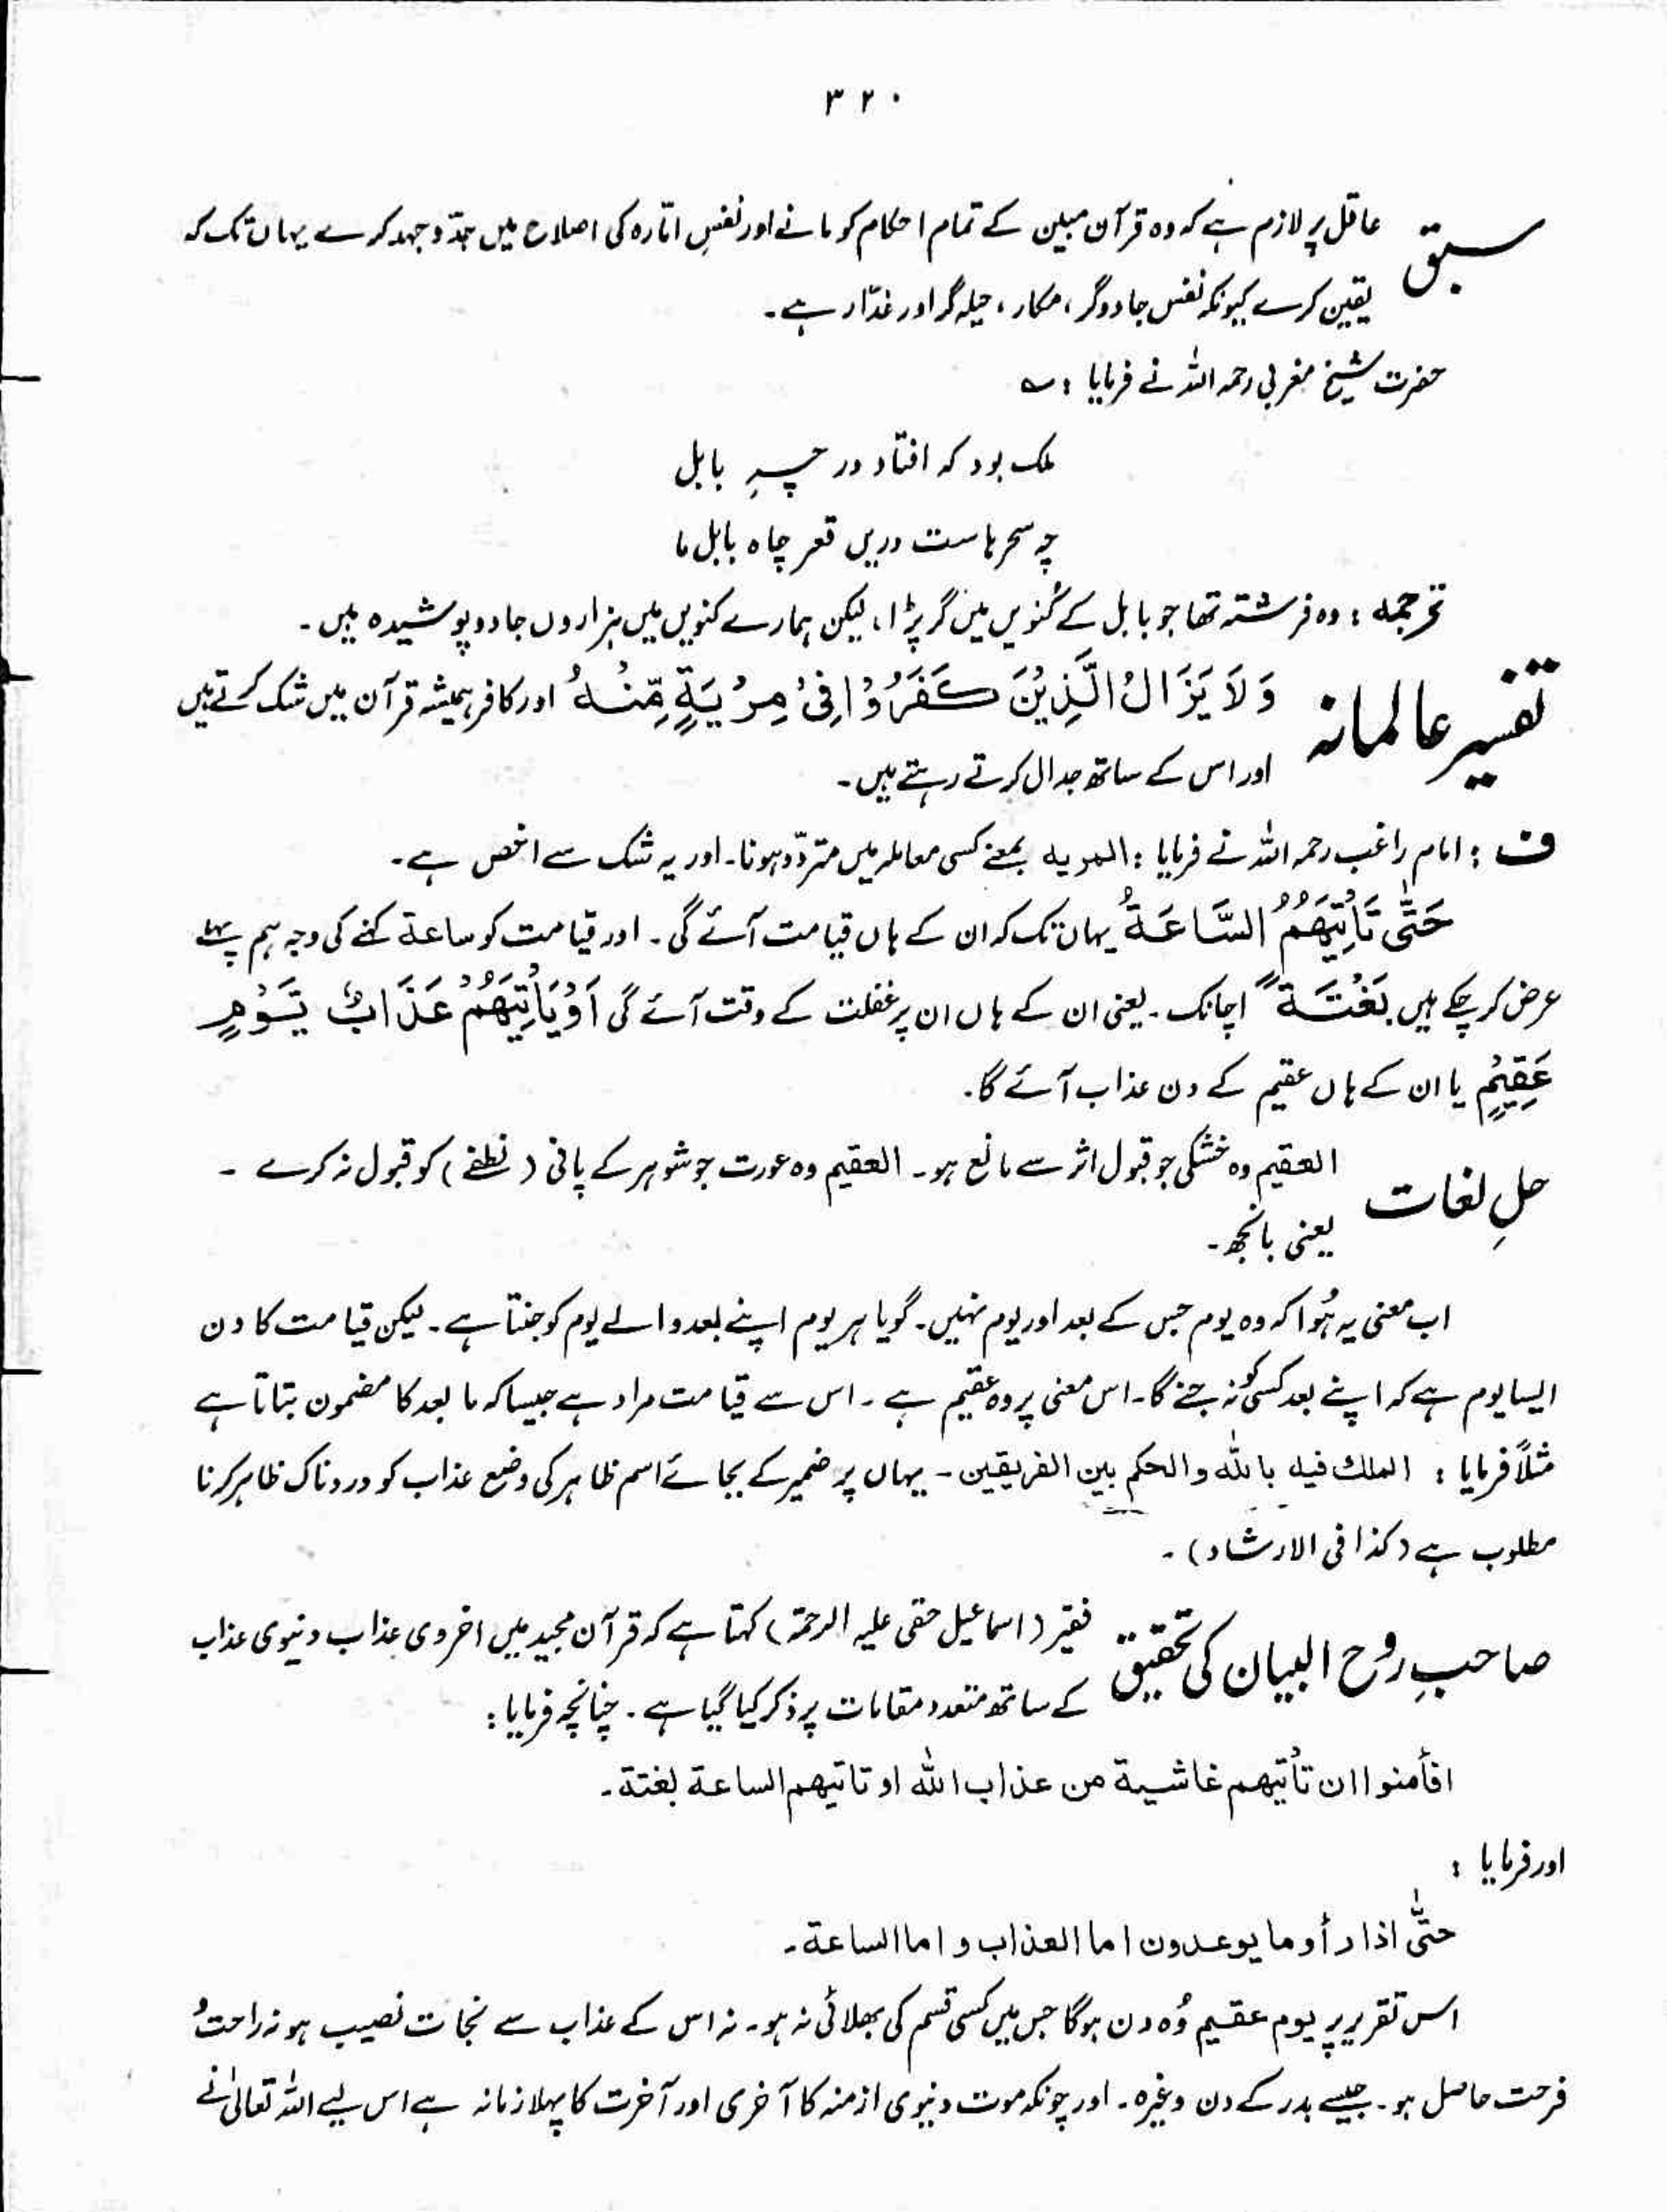 ۳۲۰
سبق عاقل پر لازم ہے کہ وہ قرآن مبین کے تمام احکام کو مانے اور نفسِ امّارہ کی اصلاح میں جدّ و جہد کرے یہاں تک کہ
یقین کرے کیونکہ نفس جادوگر، مکار، حیلہ گر اور غدّار ہے۔
حضرت شیخ مغربی رحمہ اللہ نے فرمایا : ؎
ملک بود کہ افتاد در چہِ بابل
چہ سحرہاست دریں قعر چاہ بابل ما
ترجمہ : وہ فرشتہ تھا جو بابل کے کُنویں میں گر پڑا، لیکن ہمارے کنویں میں ہزاروں جادو پوشیدہ ہیں۔
تفسیر عالمانہ وَلَا يَزَالُ الَّذِيْنَ كَفَرُوْا فِىْ مِرْيَةٍ مِّنْهُ اور کافر ہمیشہ قرآن میں شک کرتے ہیں
اور اس کے ساتھ جدال کرتے رہتے ہیں۔
ف : امام راغب رحمہ اللہ نے فرمایا : المریہ بمعنے کسی معاملہ میں متردّد ہونا۔ اور یہ شک سے اخص ہے۔
حَتّٰى تَاْتِيَهُمُ السَّاعَةُ یہاں تک کہ ان کے ہاں قیامت آئے گی۔ اور قیامت کو ساعۃ کہنے کی وجہ ہم پہلے
عرض کر چکے ہیں بَغْتَةً اچانک۔ یعنی ان کے ہاں ان پر غفلت کے وقت آئے گی اَوْ يَاْتِيَهُمْ عَذَابُ يَوْمٍ
عَقِيْمٍ یا ان کے ہاں عقیم کے دن عذاب آئے گا۔
حلِ لغات العقیم وہ خشکی جو قبول اثر سے مانع ہو۔ العقیم وہ عورت جو شوہر کے پانی (نطفے) کو قبول نہ کرے ۔
یعنی بانجھ۔
اب معنی یہ ہُوا کہ وہ یوم جس کے بعد اور یوم نہیں۔ گویا ہر یوم اپنے بعد والے یوم کو جنتا ہے۔ لیکن قیامت کا دن
ایسا یوم ہے کہ اپنے بعد کسی کو نہ جنے گا۔ اس معنی پر وہ عقیم ہے ۔ اس سے قیامت مراد ہے جیسا کہ ما بعد کا مضمون بتاتا ہے
مثلاً فرمایا : الملك فيه بالله والحكم بين الفريقين ۔ یہاں پر ضمیر کے بجائے اسم ظاہر کی وضع عذاب کو دردناک ظاہر کرنا
مطلوب ہے (کذا فی الارشاد) ۔
صاحبِ روح البیان کی تحقیق فقیر (اسماعیل حقی علیہ الرحمۃ) کہتا ہے کہ قرآن مجید میں اخروی عذاب دنیوی عذاب
کے ساتھ متعدد مقامات پر ذکر کیا گیا ہے۔ چنانچہ فرمایا :
افأمنوا ان تأتيهم غاشية من عذاب الله او تاتيهم الساعة بغتة۔
اور فرمایا :
حتّٰى اذا رأو ما يوعدون اما العذاب و اما الساعة۔
اس تقریر پر یوم عقیم وُہ دن ہوگا جس میں کسی قسم کی بھلائی نہ ہو۔ نہ اس کے عذاب سے نجات نصیب ہو نہ راحت و
فرحت حاصل ہو۔ جیسے بدر کے دن وغیرہ۔ اور چونکہ موت دنیوی ازمنہ کا آخری اور آخرت کا پہلا زمانہ ہے اس لیے اللہ تعالیٰ نے